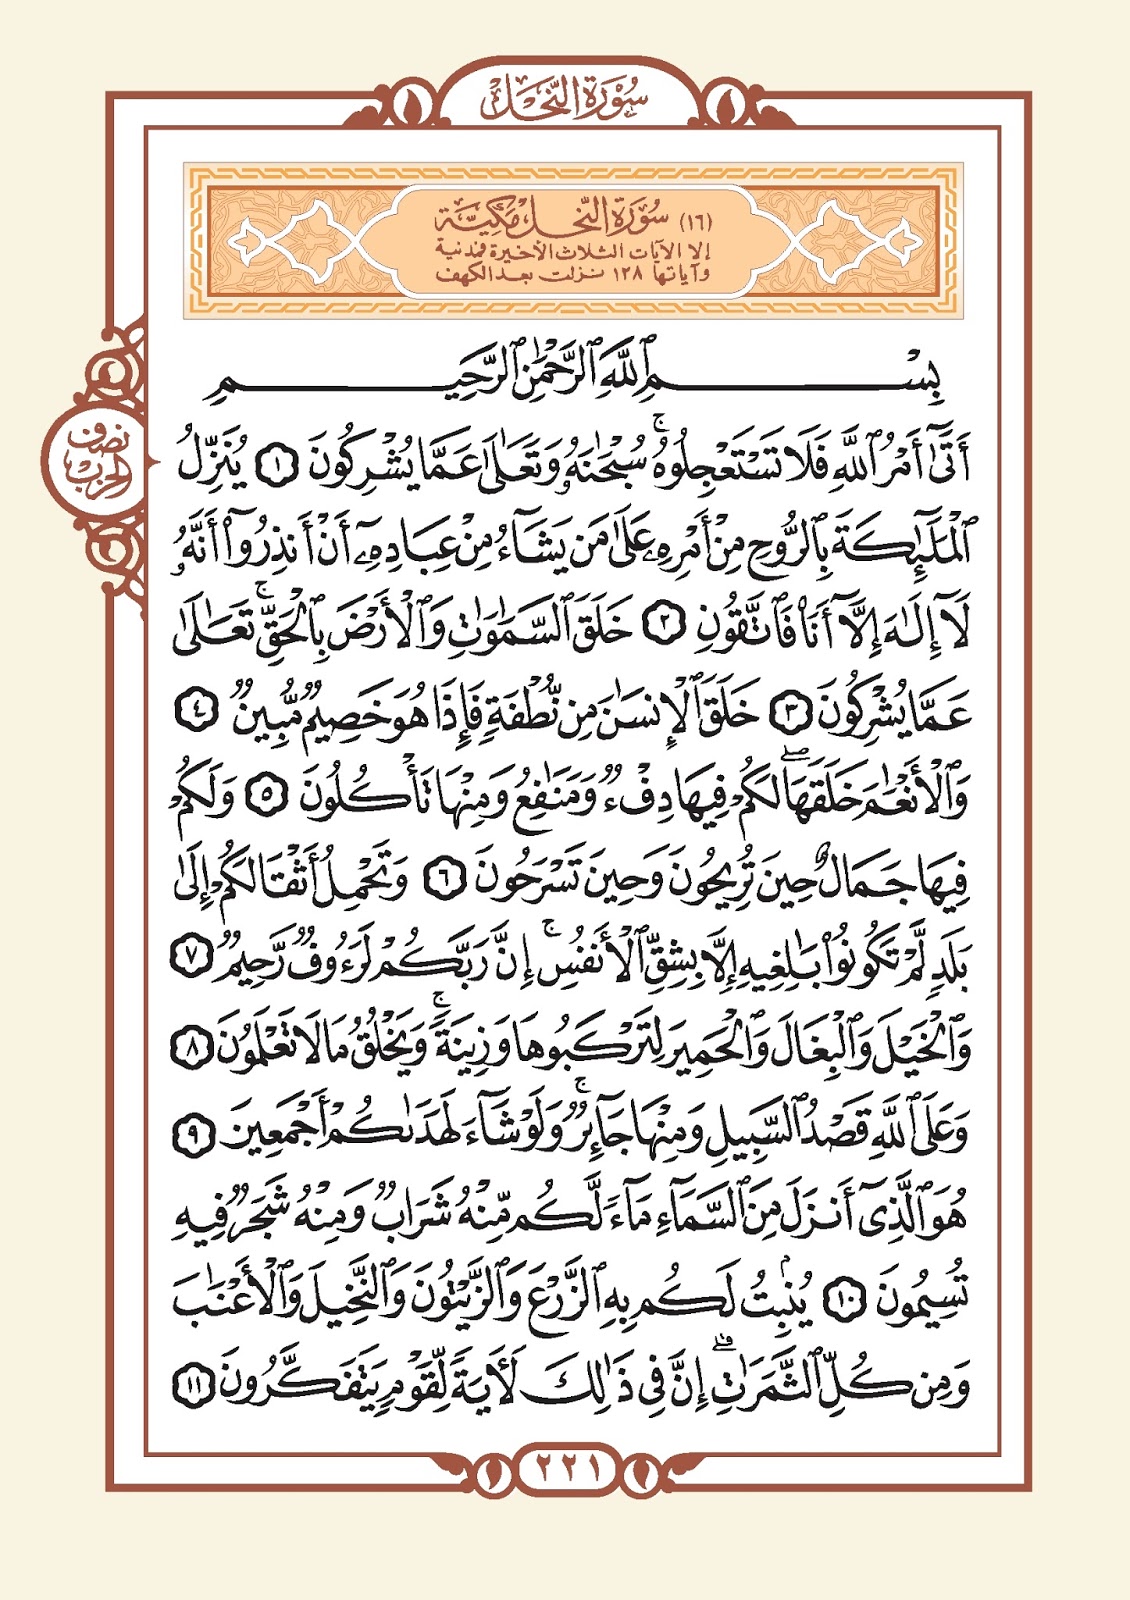 سُورَةُ النَّحْل
(١٦) سُورَةُ النَّحْلِ مَكِّيَّة
إلا الآيات الثلاث الأخيرة فمدنية
وآياتها ١٢٨ نزلت بعد الكهف
بِسْمِ ٱللَّهِ ٱلرَّحْمَٰنِ ٱلرَّحِيمِ
أَتَىٰٓ أَمْرُ ٱللَّهِ فَلَا تَسْتَعْجِلُوهُ ۚ سُبْحَٰنَهُۥ وَتَعَٰلَىٰ عَمَّا يُشْرِكُونَ ١ يُنَزِّلُ
ٱلْمَلَٰٓئِكَةَ بِٱلرُّوحِ مِنْ أَمْرِهِۦ عَلَىٰ مَن يَشَآءُ مِنْ عِبَادِهِۦٓ أَنْ أَنذِرُوٓا۟ أَنَّهُۥ
لَآ إِلَٰهَ إِلَّآ أَنَا۠ فَٱتَّقُونِ ٢ خَلَقَ ٱلسَّمَٰوَٰتِ وَٱلْأَرْضَ بِٱلْحَقِّ ۚ تَعَٰلَىٰ
عَمَّا يُشْرِكُونَ ٣ خَلَقَ ٱلْإِنسَٰنَ مِن نُّطْفَةٍ فَإِذَا هُوَ خَصِيمٌ مُّبِينٌ ٤
وَٱلْأَنْعَٰمَ خَلَقَهَا ۖ لَكُمْ فِيهَا دِفْءٌ وَمَنَٰفِعُ وَمِنْهَا تَأْكُلُونَ ٥ وَلَكُمْ
فِيهَا جَمَالٌ حِينَ تُرِيحُونَ وَحِينَ تَسْرَحُونَ ٦ وَتَحْمِلُ أَثْقَالَكُمْ إِلَىٰ
بَلَدٍ لَّمْ تَكُونُوا۟ بَٰلِغِيهِ إِلَّا بِشِقِّ ٱلْأَنفُسِ ۚ إِنَّ رَبَّكُمْ لَرَءُوفٌ رَّحِيمٌ ٧
وَٱلْخَيْلَ وَٱلْبِغَالَ وَٱلْحَمِيرَ لِتَرْكَبُوهَا وَزِينَةً ۚ وَيَخْلُقُ مَا لَا تَعْلَمُونَ ٨
وَعَلَى ٱللَّهِ قَصْدُ ٱلسَّبِيلِ وَمِنْهَا جَآئِرٌ ۚ وَلَوْ شَآءَ لَهَدَىٰكُمْ أَجْمَعِينَ ٩
هُوَ ٱلَّذِىٓ أَنزَلَ مِنَ ٱلسَّمَآءِ مَآءً لَّكُم مِّنْهُ شَرَابٌ وَمِنْهُ شَجَرٌ فِيهِ
تُسِيمُونَ ١٠ يُنۢبِتُ لَكُم بِهِ ٱلزَّرْعَ وَٱلزَّيْتُونَ وَٱلنَّخِيلَ وَٱلْأَعْنَٰبَ
وَمِن كُلِّ ٱلثَّمَرَٰتِ ۗ إِنَّ فِى ذَٰلِكَ لَءَايَةً لِّقَوْمٍ يَتَفَكَّرُونَ ١١
نصف
الحزب
٢٢١